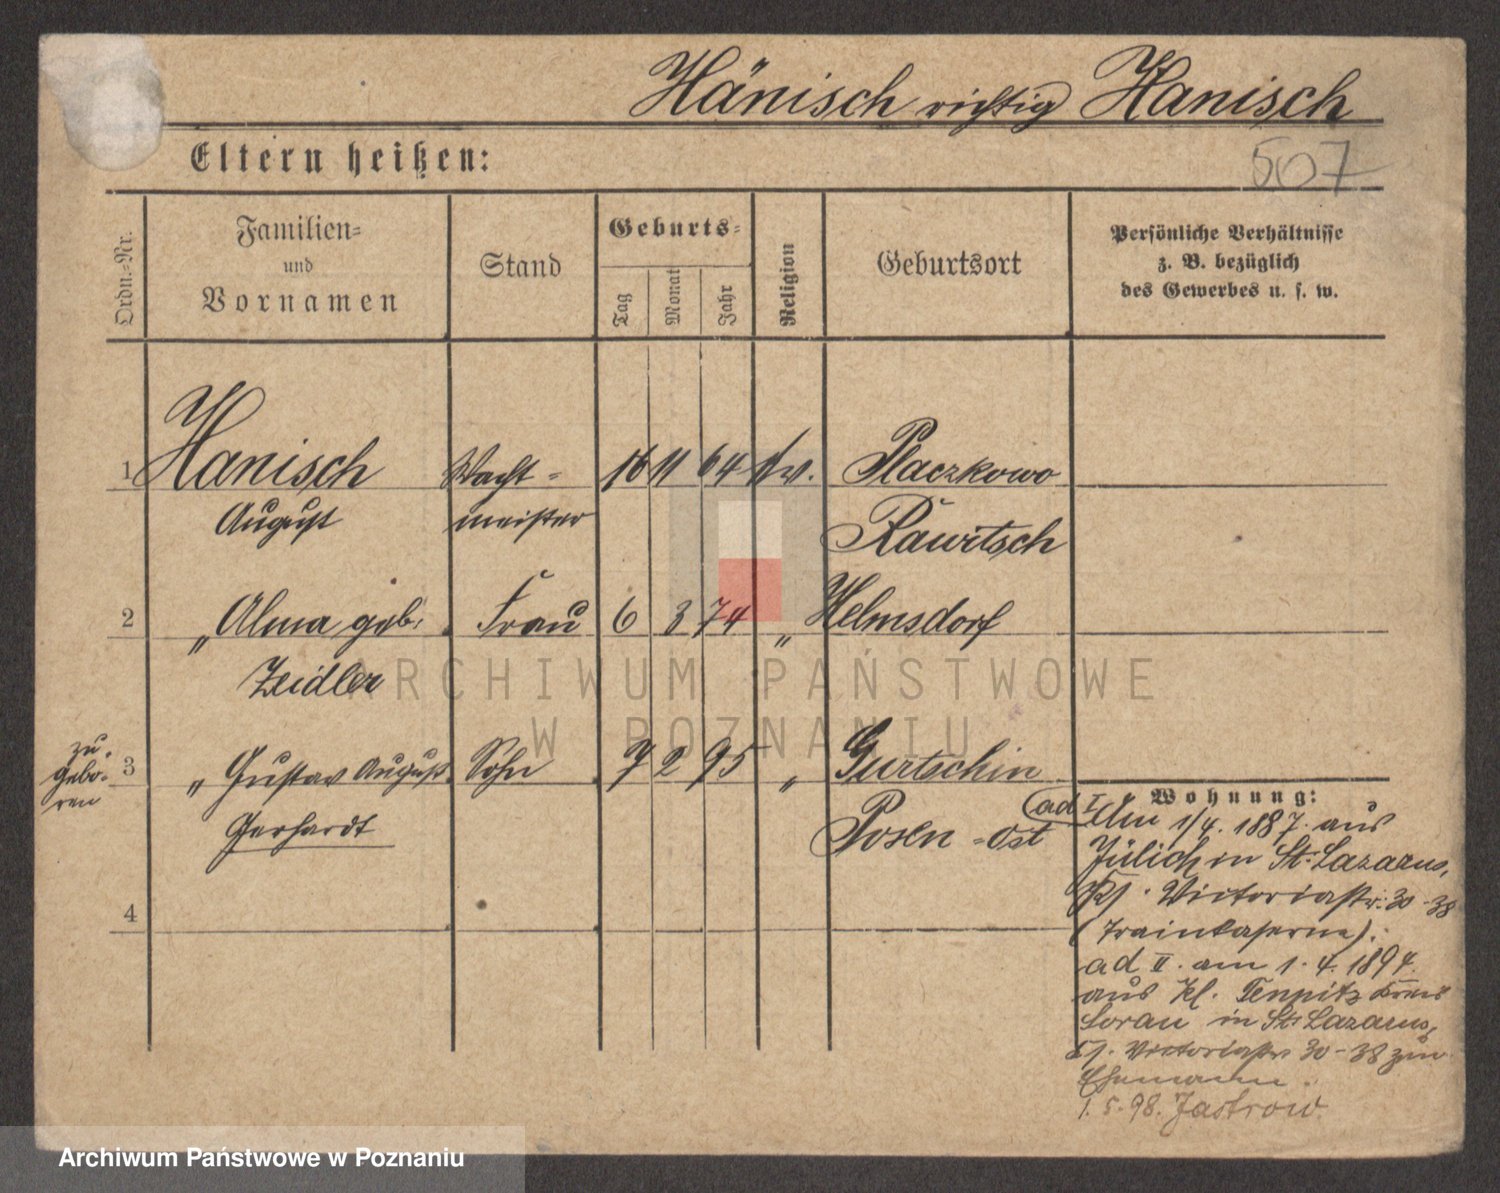 Hänisch richtig Hanisch
Eltern heißen:
507
Ordn.-Nr.
Familien-
und
Vornamen
Stand
Geburts-
Tag
Monat
Jahr
Religion
Geburtsort
Persönliche Verhältnisse
z. B. bezüglich
des Gewerbes u. s. w.
1 Hanisch Wacht- 16 11 64 Ev. Placzkowo
August meister Rawitsch
2 " Alma geb. Frau 6 3 74 " Helmsdorf
Zeidler
zu
gebo-
ren
3 " Gustav August Sohn 7 2 95 " Gurtschin
Gerhardt Posen-Ost
4
Wohnung:
ad I Am 1/4. 1887. aus
Jülich in St. Lazarus,
Victoriastr. 30-38
(Trainkaserne).
ad II. am 1. 4. 1894.
aus Kl. Kreis
Sorau in St. Lazarus,
Victoriastr 30-38 zum
Ehemann.
1. 5. 98. Jastrow
ARCHIWUM PAŃSTWOWE
W POZNANIU
Archiwum Państwowe w Poznaniu